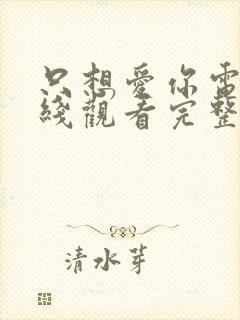 只想愛你電
綫觀看完整
清水芽